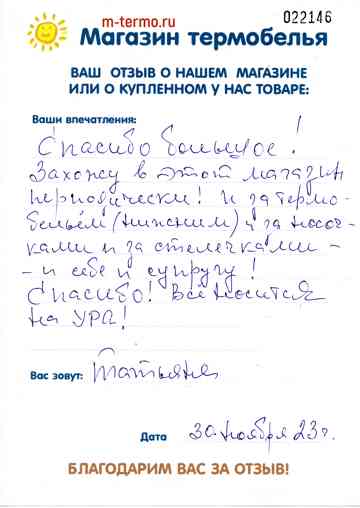 m-termo.ru
022146
Магазин термобелья
ВАШ ОТЗЫВ О НАШЕМ МАГАЗИНЕ
ИЛИ О КУПЛЕННОМ У НАС ТОВАРЕ:
Ваши впечатления:
Спасибо большое!
Захожу в этот магазин
периодически! И за термо-
бельём (нижним) и за носоч-
ками и за стелечками -
- и себе и супругу!
Спасибо! Всё носится
на УРА!
Вас зовут: Татьяна
Дата 30 ноября 23г.
БЛАГОДАРИМ ВАС ЗА ОТЗЫВ!